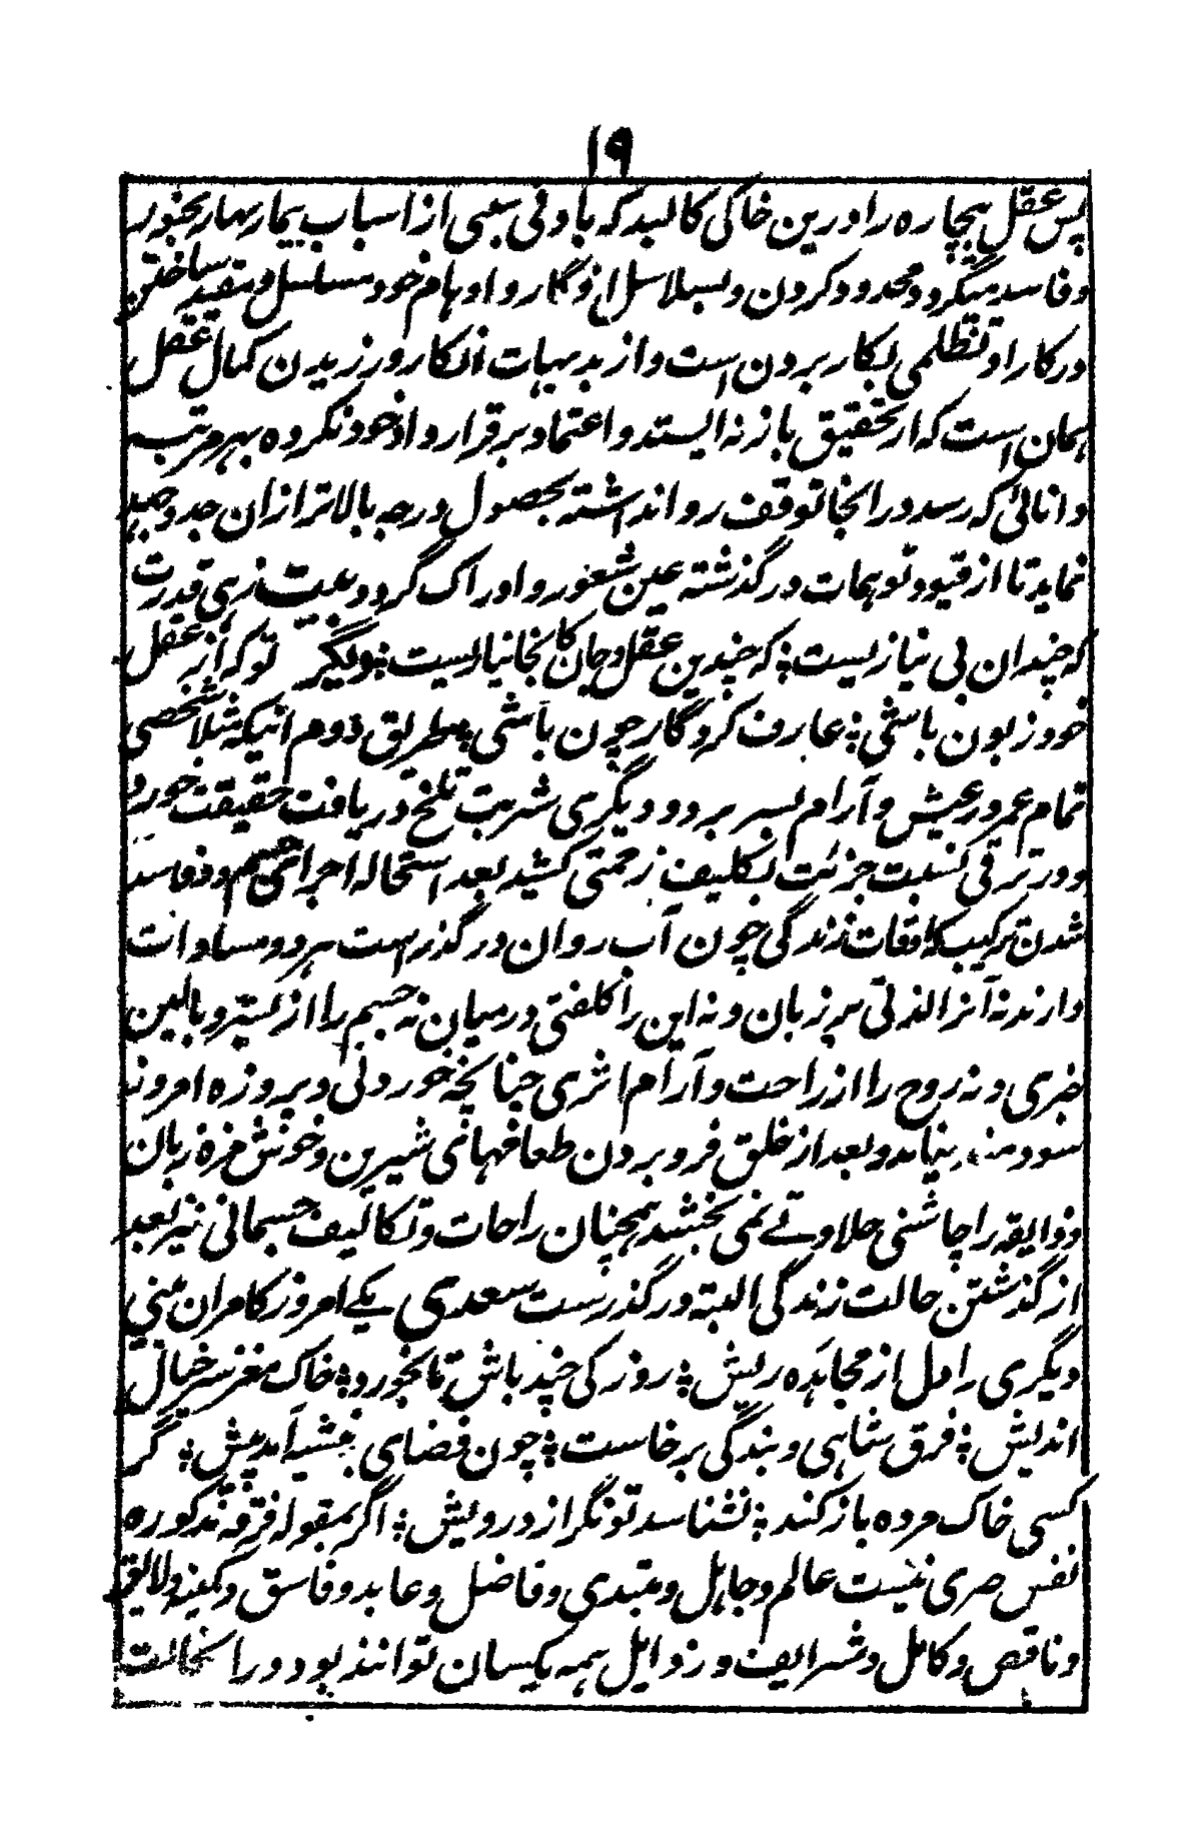 ۱۹
پس عقل بیچاره را درین خاکی کالبد که بادنی سببی از اسباب بیمار بهار بخور
و فاسد میگردد محدود کردن و بسلاسل افکار و اوهام خود مسلسل و مقید ساختن
در کار او تظلمی بکار بردن است و از بدیهیات انکار ورزیدن کمال عقل
همان است که از تحقیق باز نه ایستد و اعتماد بر قرارداد خود نکرده بهر مرتبه
دانائی که رسد در انجا توقف روا نداشته بحصول درجه بالاتر ازان جد و جهد
نماید تا از قیود توهمات در گذشته عین شعور و ادراک گردد بیت زهی قدرت
که چندان بی نیاز یست ؛ که چندین عقل و جان کانجا نیاز یست ؛ دیگر تو که از عقل
خود زبون باشی ؛ عارف کردگار چون باشی ؛ طریق دوم انیکه مثلا شخصی
تمام عمر در عیش و آرام بسر برد و دیگری شربت تلخ دریافت حقیقت خورد
و در ترقی نسبت جزئیت بکلیف زحمتی کشید بعد استحاله اجرای جسم و فاسد
شدن ترکیب اوقات زندگی چون آب روان در گذر است هر دو مساوات
دارند نه آنرا لذتی بر زبان و نه این را کلفتی در میان نه جسم را از بستر و بالین
خبری و نه روح را از راحت و آرام اثری چنانچه خوردنی دیروزه امروز
سودمند نیاید و بعد از حلق فرو بردن طعامهای شیرین و خوش مزه زبان
و ذایقه را چاشنی حلاوتے نمی بخشد همچنان راحات و تکالیف جسمانی نیز بعد
از گذشتن حالت زندگی البته در گذر ست سعدی یکے امروز کامران بینی
دیگری را دل از مجاهده ریش ؛ روز کی چند باش تا بخورد ؛ خاک مغز سر خیال
اندیش ؛ فرق شاهی و بندگی برخاست ؛ چون قضای نبشته آمد پیش ؛ گر
کسی خاک مرده باز کند ؛ نشناسد تونگر از درویش ؛ اگر بمقوله فرقه مذکوره
نفس مری نیست عالم و جاهل و مبتدی و فاضل و عابد و فاسق و کمینه و لایق
و ناقص و کامل و شرایف و رزوایل همه یکسان توانند بود و در انحالت